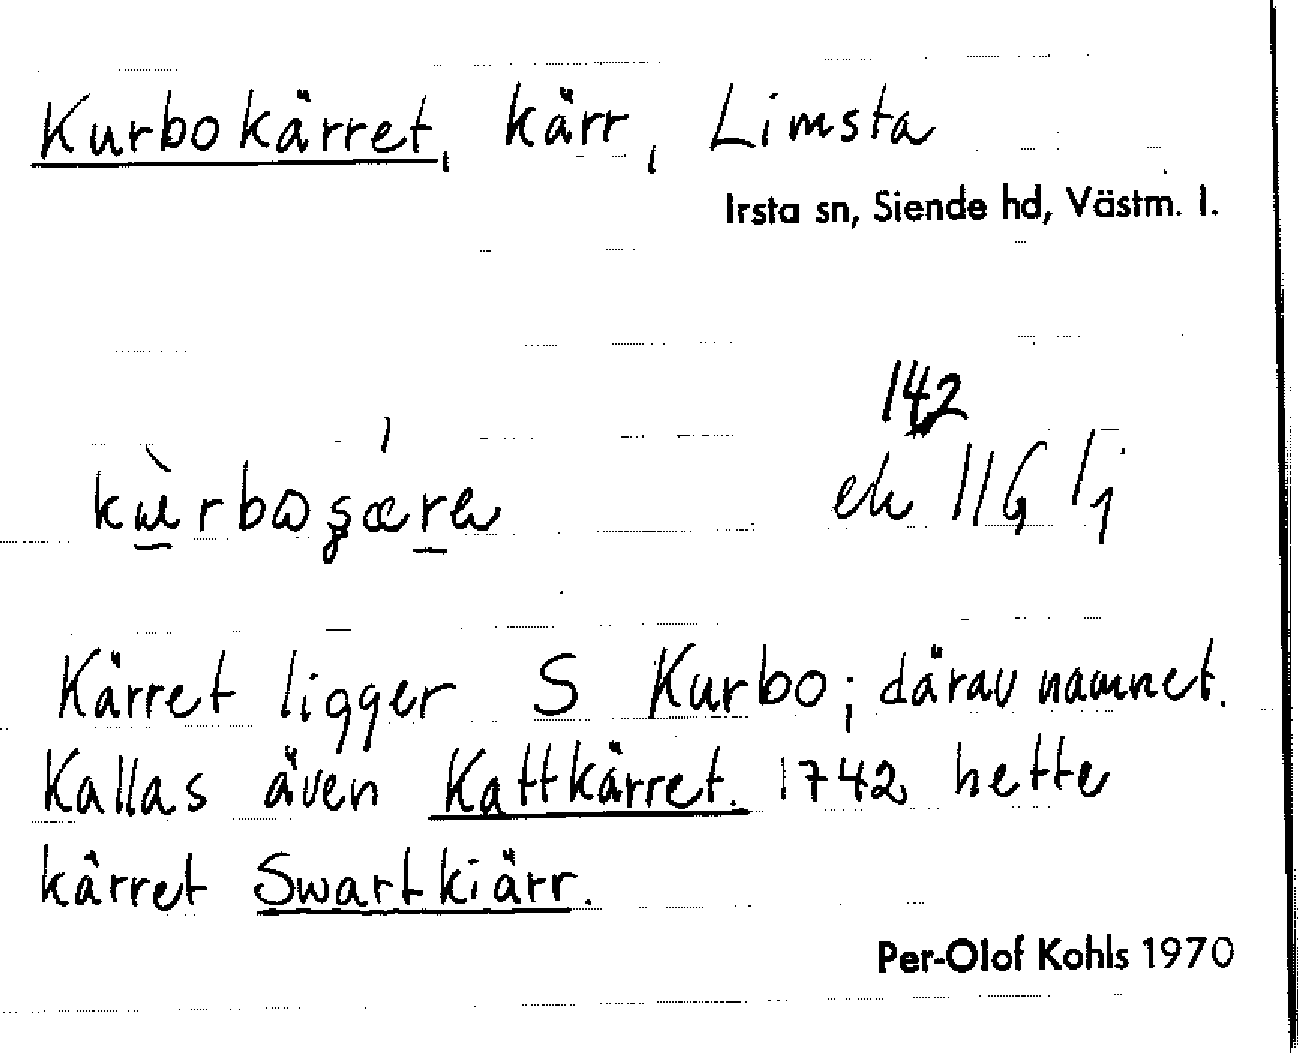 Kurbokärret, kärr, Limsta
Irsta sn, Siende hd, Västm. l.
142
ek 11G 1j
Kärret ligger S Kurbo; därav namnet.
Kallas även Kattkärret. 1742 hette
kärret Swartkiärr.
Per-Olof Kohls 1970